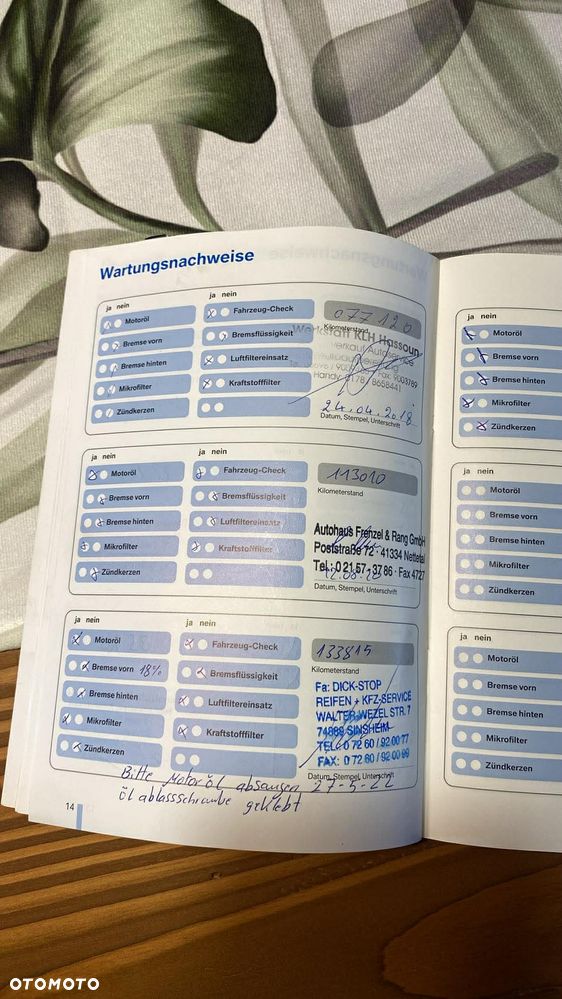 Wartungsnachweise
ja nein
Motoröl
Bremse vorn
Bremse hinten
Mikrofilter
Zündkerzen
ja nein
Fahrzeug-Check
Bremsflüssigkeit
Luftfiltereinsatz
Kraftstofffilter
077120
Kilometerstand
KLH Hassoun
Handy:
8658441
24.04.2018
Datum, Stempel, Unterschrift
ja nein
Motoröl
Bremse vorn
Bremse hinten
Mikrofilter
Zündkerzen
ja nein
Fahrzeug-Check
Bremsflüssigkeit
Luftfiltereinsatz
Kraftstofffilter
113010
Kilometerstand
Autohaus Frenzel & Rang GmbH
Poststraße 72 · 41334 Nettetal
Tel.: 0 21 57 - 37 86 · Fax 4727
Datum, Stempel, Unterschrift
ja nein
Motoröl
Bremse vorn 18%
Bremse hinten
Mikrofilter
Zündkerzen
ja nein
Fahrzeug-Check
Bremsflüssigkeit
Luftfiltereinsatz
Kraftstofffilter
133815
Kilometerstand
Fa: DICK-STOP
REIFEN + KFZ-SERVICE
WALTER-WEZEL STR. 7
74889 SINSHEIM
TEL: 0 72 60 / 92 00 77
FAX: 0 72 60 / 92 00 99
Datum, Stempel, Unterschrift
Bitte Motoröl absaugen 27-5-22
öl ablassschraube geklebt
14
ja nein
Motoröl
Bremse vorn
Bremse hinten
Mikrofilter
Zündkerzen
ja nein
Motoröl
Bremse vorn
Bremse hinten
Mikrofilter
Zündkerzen
ja nein
Motoröl
Bremse vorn
Bremse hinten
Mikrofilter
Zündkerzen
OTOMOTO